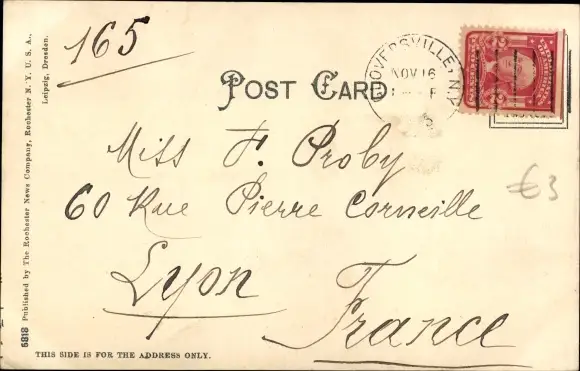 165
POST CARD
GLOVERSVILLE, N.Y.
NOV 16
Miss F. Proby
60 Rue Pierre Corneille
Lyon
France
€3
5818 Published by The Rochester News Company, Rochester N. Y. U. S. A.,
Leipzig, Dresden.
THIS SIDE IS FOR THE ADDRESS ONLY.